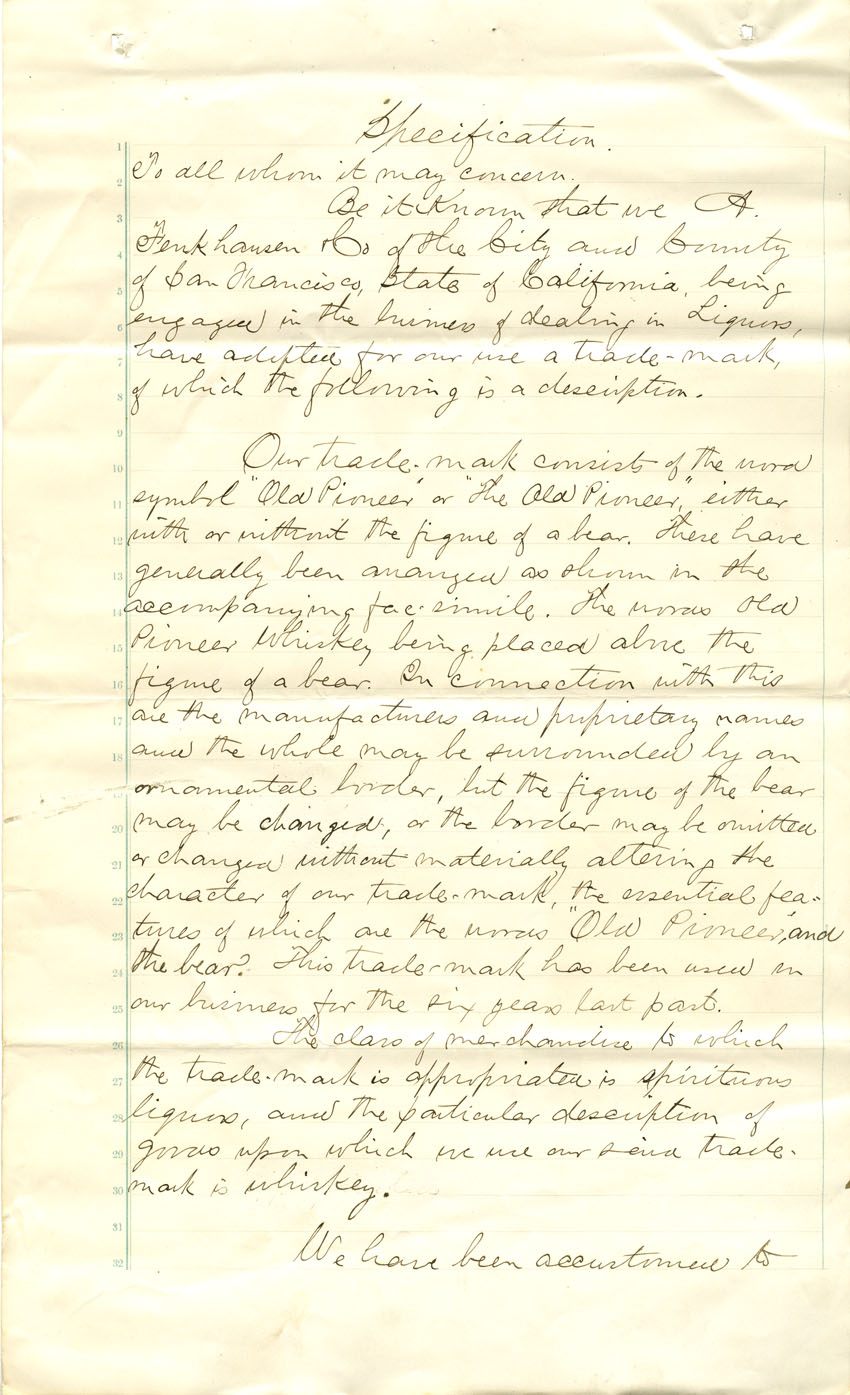 Specification.
1
To all whom it may concern.
2
Be it Known that we A.
3
Fenkhausen & Co of the City and County
4
of San Francisco, State of California, being
5
engaged in the business of dealing in Liquors,
6
have adopted for our use a trade-mark,
7
of which the following is a description.
8
9
Our trade-mark consists of the word
10
symbol "Old Pioneer" or "The Old Pioneer," either
11
with or without the figure of a bear. These have
12
generally been arranged as shown in the
13
accompanying fac-simile. The words Old
14
Pioneer Whiskey being placed above the
15
figure of a bear. In connection with this
16
are the manufacturers and proprietary names
17
and the whole may be surrounded by an
18
ornamental border, but the figure of the bear
19
may be changed, or the border may be omitted
20
or changed without materially altering the
21
character of our trade-mark, the essential fea-
22
tures of which are the words "Old Pioneer," and
23
the bear. This trade-mark has been used in
24
our business for the six years last past.
25
The class of merchandise to which
26
the trade-mark is appropriated is spirituous
27
liquors, and the particular description of
28
goods upon which we use our said trade-
29
mark is whiskey.
30
31
We have been accustomed to
32